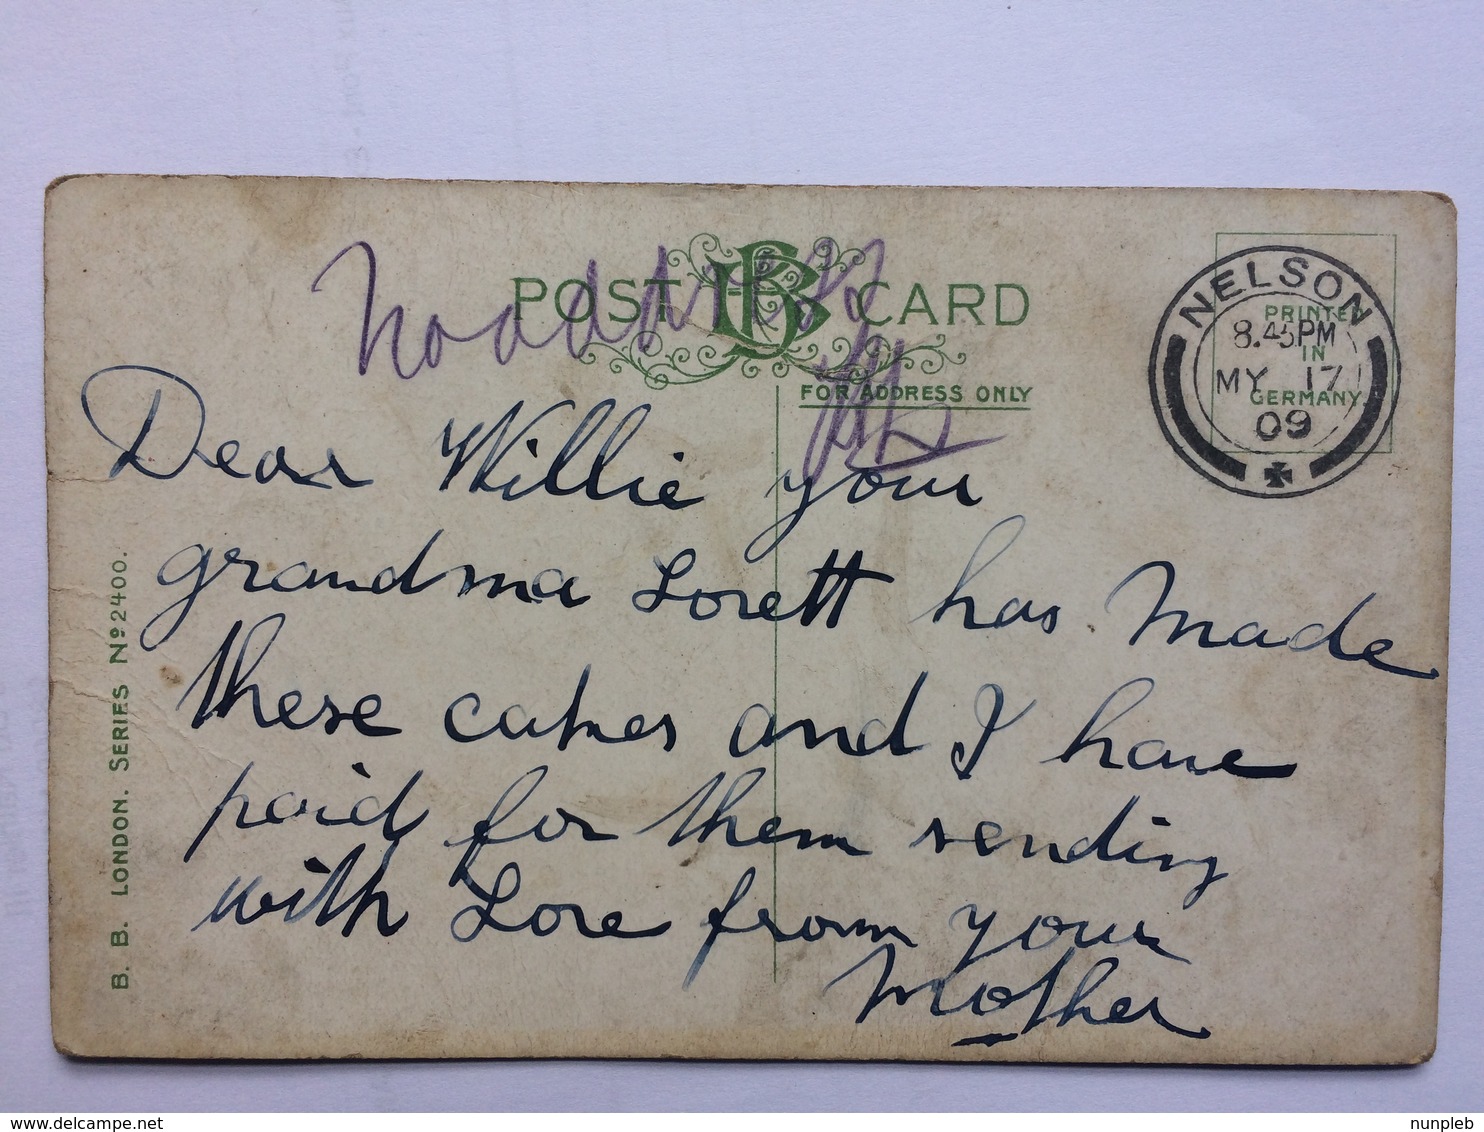 POST CARD
No address
FOR ADDRESS ONLY
NELSON
8.45PM
MY 17
09
PRINTED
IN
GERMANY
Dear Willie your
grandma Lorett has Made
these cakes and I have
paid for them sending
with Love from your
Mother
B. B. LONDON. SERIES Nº 2400.
delcampe.net
nunpleb